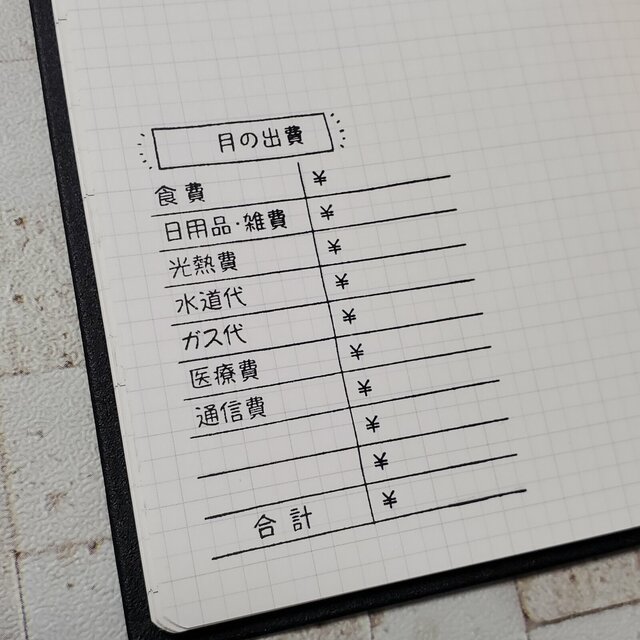 月の出費
食費 ¥
日用品・雑費 ¥
光熱費 ¥
水道代 ¥
ガス代 ¥
医療費 ¥
通信費 ¥
¥
¥
合計 ¥